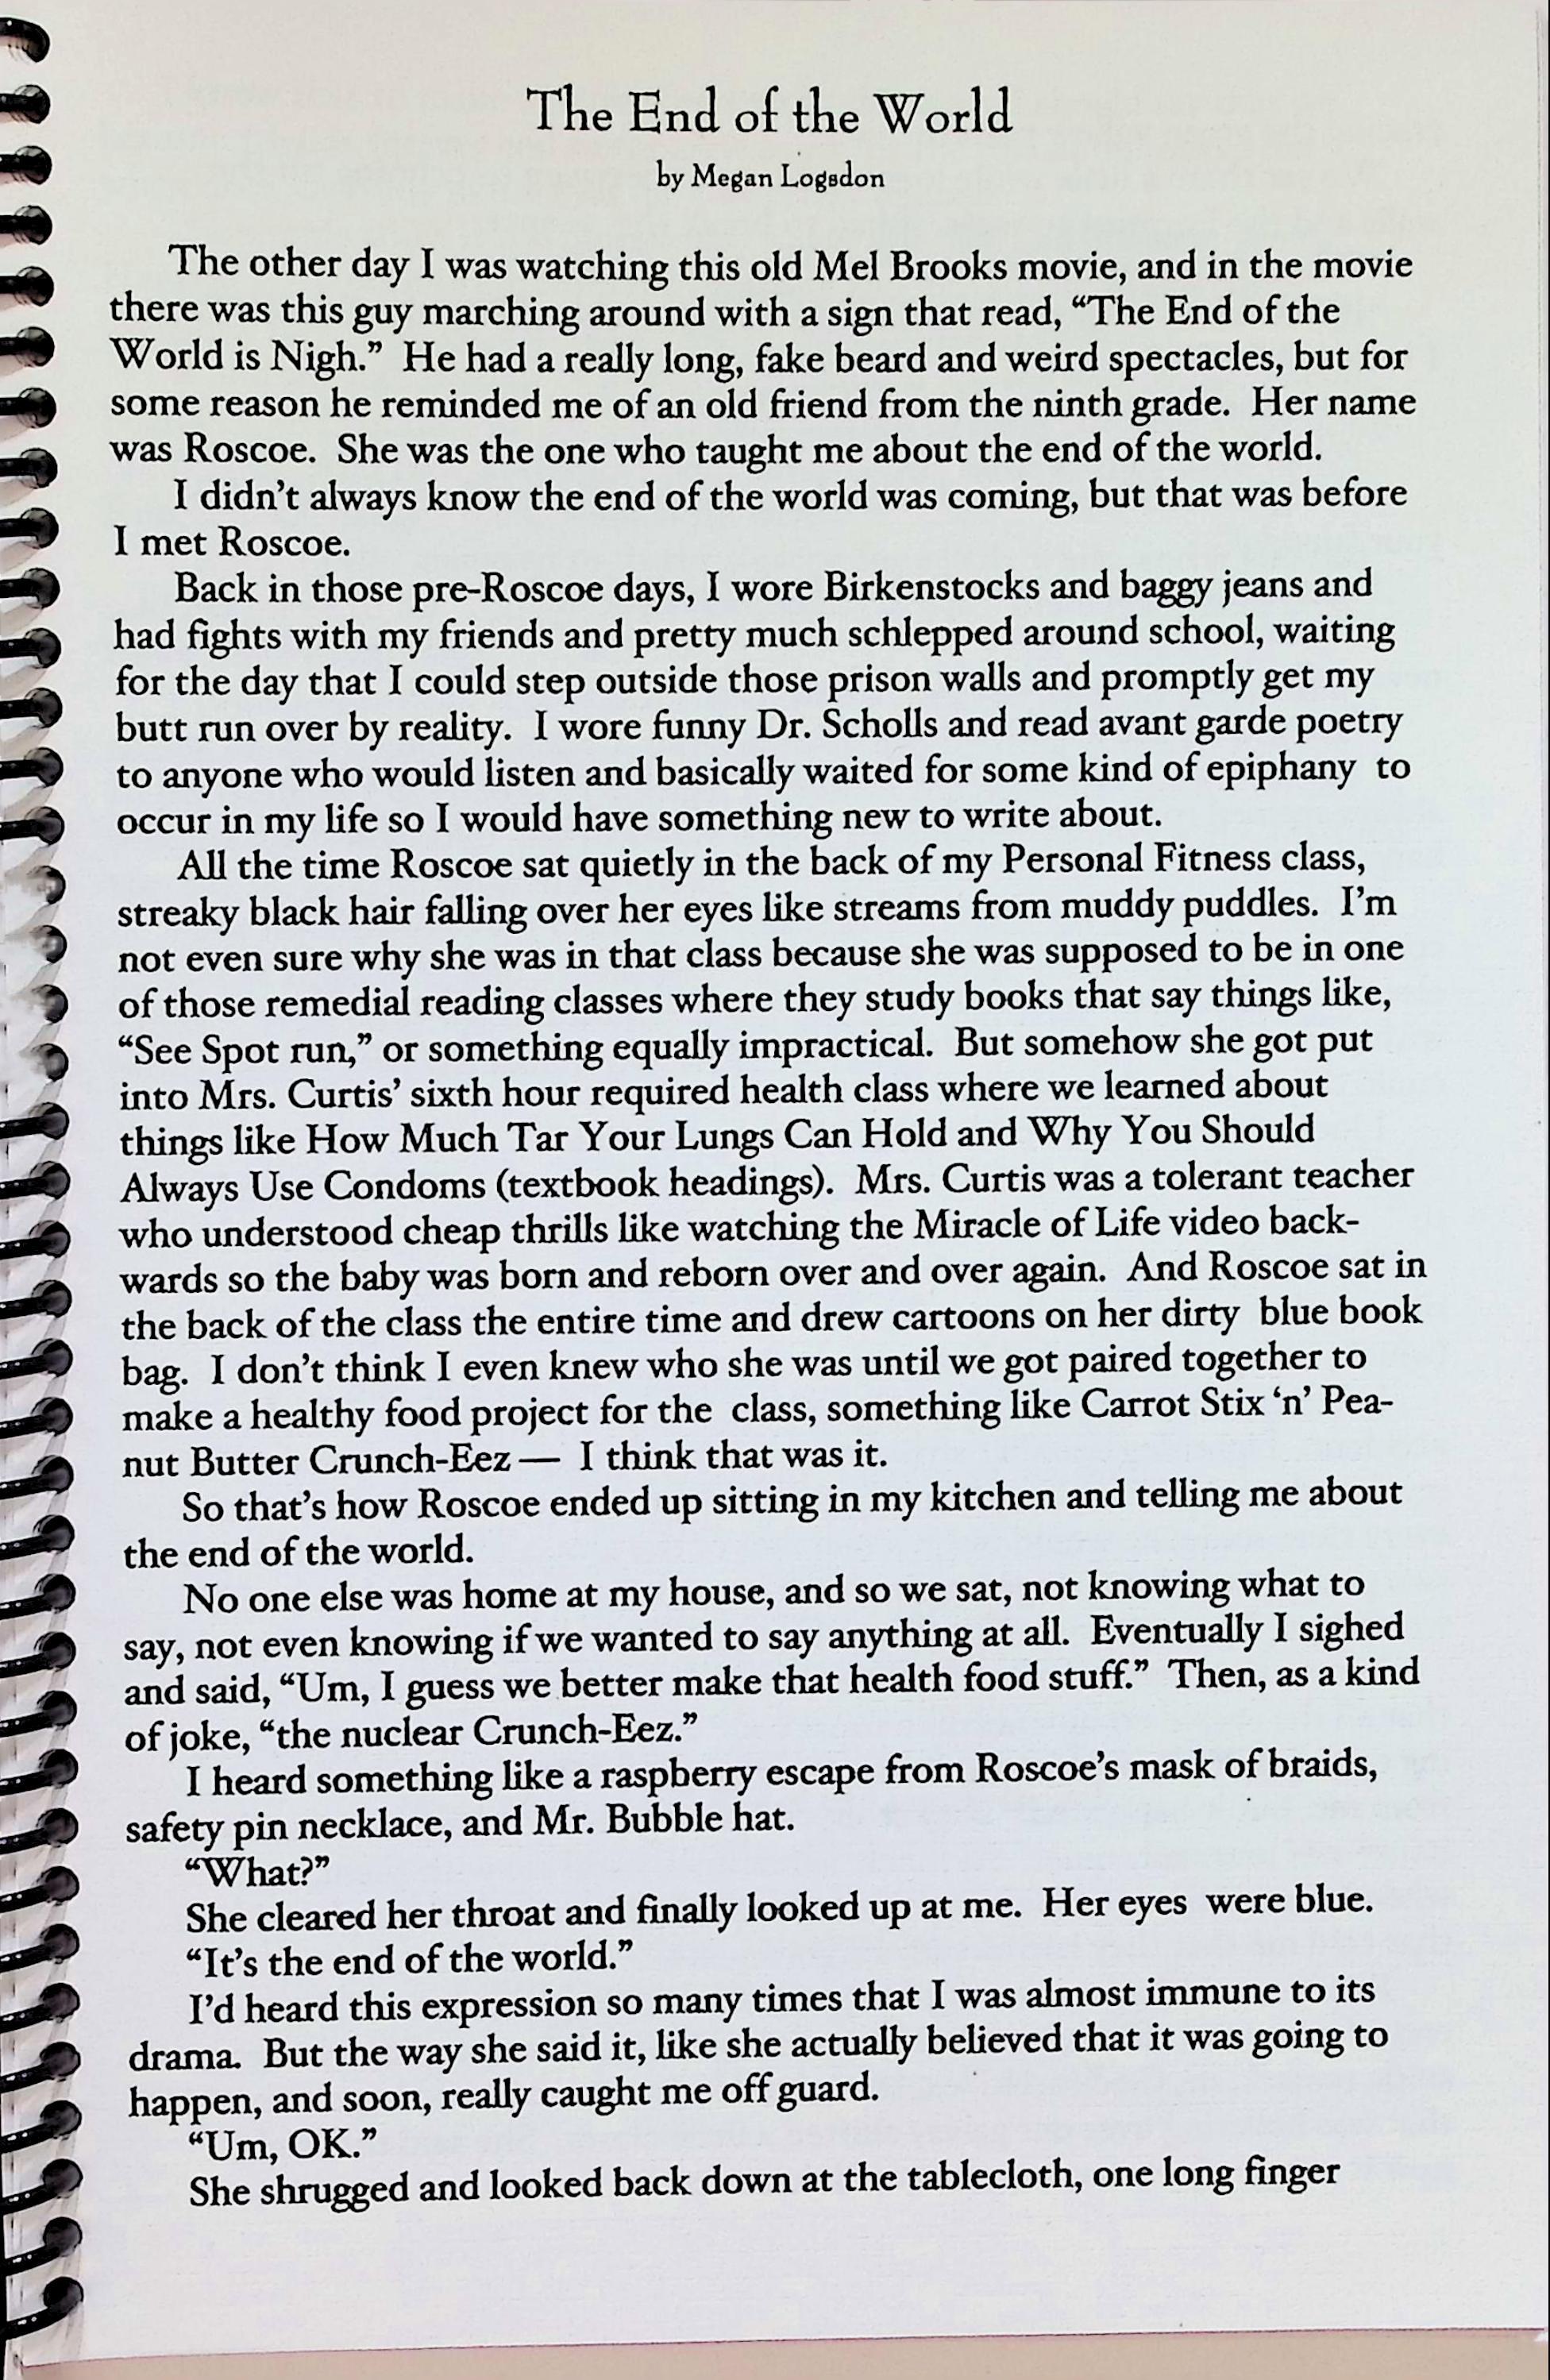 The End of the World
by Megan Logsdon
The other day I was watching this old Mel Brooks movie, and in the movie
there was this guy marching around with a sign that read, “The End of the
World is Nigh.” He had a really long, fake beard and weird spectacles, but for
some reason he reminded me of an old friend from the ninth grade. Her name
was Roscoe. She was the one who taught me about the end of the world.
I didn’t always know the end of the world was coming, but that was before
I met Roscoe.
Back in those pre-Roscoe days, I wore Birkenstocks and baggy jeans and
had fights with my friends and pretty much schlepped around school, waiting
for the day that I could step outside those prison walls and promptly get my
butt run over by reality. I wore funny Dr. Scholls and read avant garde poetry
to anyone who would listen and basically waited for some kind of epiphany to
occur in my life so I would have something new to write about.
All the time Roscoe sat quietly in the back of my Personal Fitness class,
streaky black hair falling over her eyes like streams from muddy puddles. I’m
not even sure why she was in that class because she was supposed to be in one
of those remedial reading classes where they study books that say things like,
“See Spot run,” or something equally impractical. But somehow she got put
into Mrs. Curtis’ sixth hour required health class where we learned about
things like How Much Tar Your Lungs Can Hold and Why You Should
Always Use Condoms (textbook headings). Mrs. Curtis was a tolerant teacher
who understood cheap thrills like watching the Miracle of Life video back-
wards so the baby was born and reborn over and over again. And Roscoe sat in
the back of the class the entire time and drew cartoons on her dirty blue book
bag. I don’t think I even knew who she was until we got paired together to
make a healthy food project for the class, something like Carrot Stix ‘n’ Pea-
nut Butter Crunch-Eez — I think that was it.
So that’s how Roscoe ended up sitting in my kitchen and telling me about
the end of the world.
No one else was home at my house, and so we sat, not knowing what to
say, not even knowing if we wanted to say anything at all. Eventually I sighed
and said, “Um, I guess we better make that health food stuff.” Then, as a kind
of joke, “the nuclear Crunch-Eez.”
I heard something like a raspberry escape from Roscoe’s mask of braids,
safety pin necklace, and Mr. Bubble hat.
“What?”
She cleared her throat and finally looked up at me. Her eyes were blue.
“It’s the end of the world.”
I’d heard this expression so many times that I was almost immune to its
drama. But the way she said it, like she actually believed that it was going to
happen, and soon, really caught me off guard.
“Um, OK.”
She shrugged and looked back down at the tablecloth, one long finger